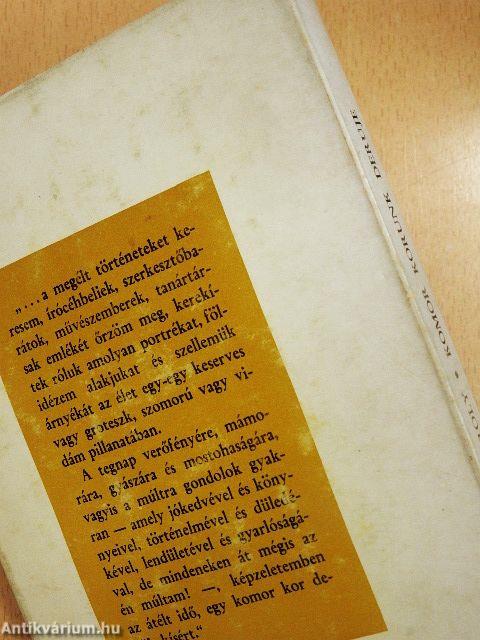 „...a megélt történeteket ke-
resem, írócéhbeliek, szerkesztőba-
rátok, művészemberek, tanártár-
sak emlékét őrzöm meg, kereki-
tek róluk amolyan portrékat, föl-
idézem alakjukat és szellemük
árnyékát az élet egy-egy keserves
vagy groteszk, szomorú vagy vi-
dám pillanatában.
A tegnap verőfényére, mámo-
rára, gyászára és mostohaságára,
vagyis a múltra gondolok gyak-
ran — amely jókedvével és köny-
nyeivel, történelmével és düledé-
kével, lendületével és gyarlóságá-
val, de mindeneken át mégis az
én múltam! —, képzeletemben
az átélt idő, egy komor kor de-
kísért.“
HOLY * KOMOR KORUNK DERÜJE
Antikvárium.hu